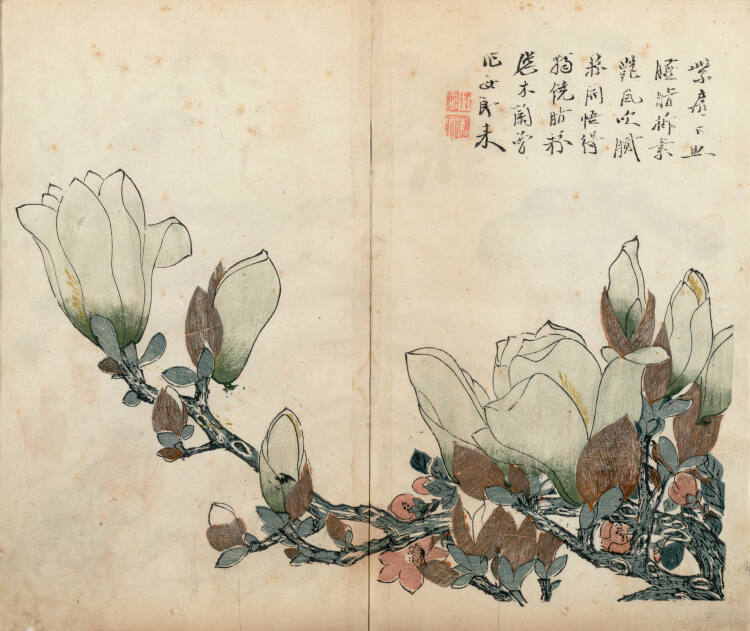 紫房日照
臙脂拆素
艷風吹膩
粉開怪得
獨饒脂粉
態木蘭曾
作女郎來